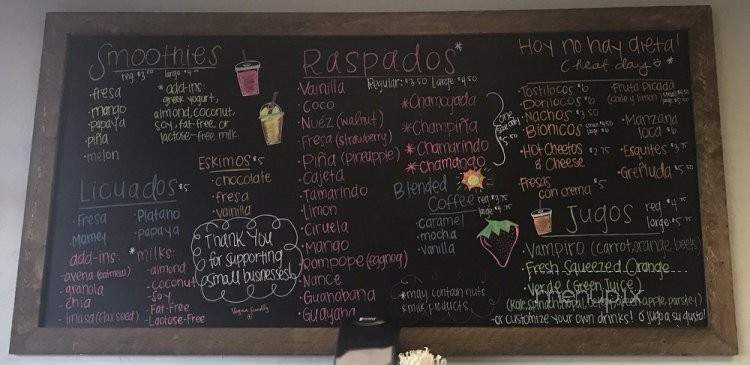 Smoothies
reg $3.50 large $4.
·fresa
·mango
·papaya
·piña
·melon
*add-ins:
greek yogurt,
almond, coconut,
soy, fat-free or
lactose-free milk
Eskimos $5
·chocolate
·fresa
·vainilla
Licuados $5
·Fresa
·Mamey
·Platano
·papaya
add-ins:
·avena (oatmeal)
·granola
·chia
·linasa (flax seed)
*milks:
·almond
·coconut
·soy
·Fat-Free
·Lactose-Free
Thank You
for supporting
small businesses!
Vegan friendly
Raspados*
Regular: $3.50 Large $4.50
Vainilla
·Coco
·Nuéz (walnut)
·Fresa (strawberry)
·Piña (pineapple)
·Cajeta
·Tamarindo
·Limon
·Ciruela
·Mango
·Rompope (eggnog)
·Nance
·Guanabana
·Guayaba
*Chamoyada
*Champiña
*Chamarindo
*Chamango
one size only $5.50
Blended
Coffee reg $3.75 large $4.75
·caramel
·mocha
·vanilla
*may contain nuts
& milk products
Hoy no hay dieta!
Cheat day *
·Tostilocos $6
·Dorilocos $6
·Nachos $3.50
·Bionicos
·Hot Cheetos $2.75
& Cheese
·Fresas
con crema $5
·Fruta Picada
(chile y limon)
·Manzana
loca $6
·Esquites $3.75
·Greñuda $5.50
Jugos reg $4.75
large $5.75
·Vampiro (carrot, orange, beets)
·Fresh Squeezed Orange
·Verde / Green Juice
apple, parsley)
·or customize your own drinks! ó jugo a su gusto!